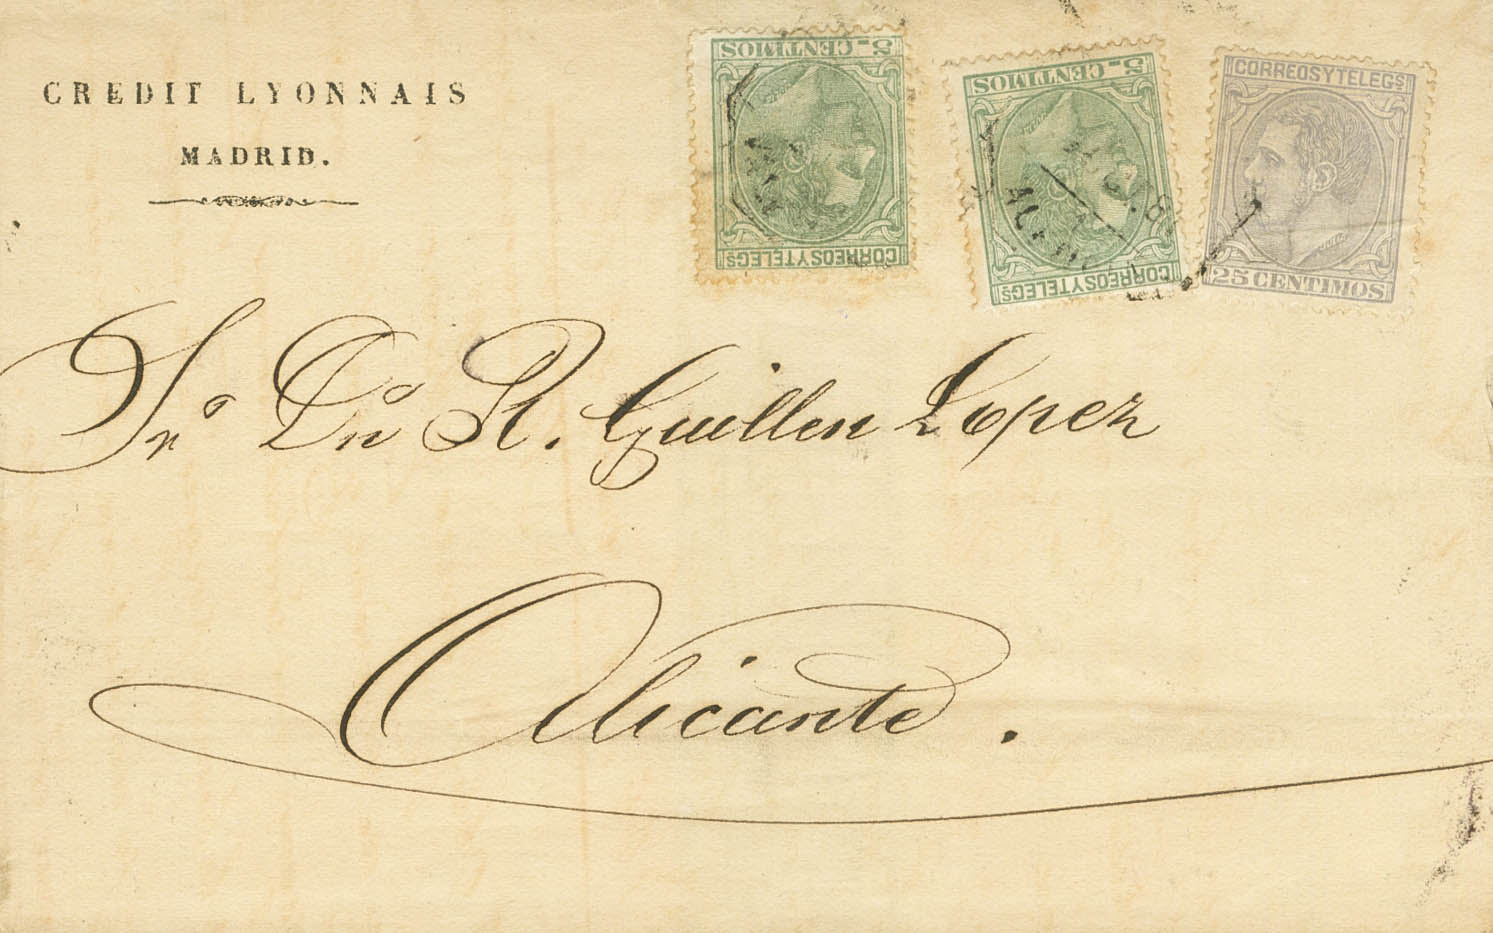 CREDIT LYONNAIS
MADRID.
5_ CENTIMOS
CORREOSYTELEGS
5_ CENTIMOS
CORREOSYTELEGS
CORREOSYTELEGS
25 CENTIMOS
Sr. Dn R. Guillen Lopez
Alicante.